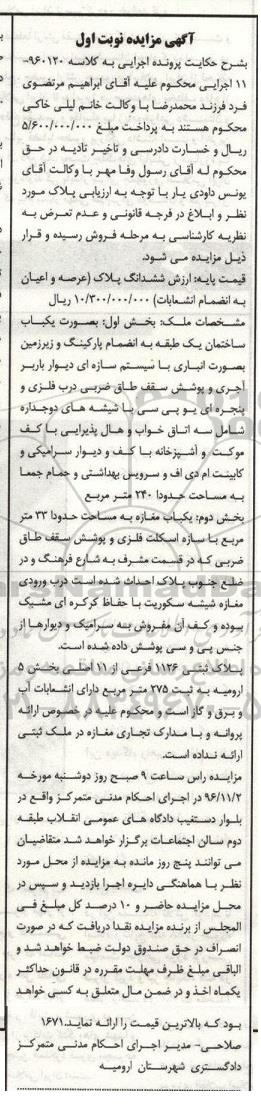 آگهی مزایده نوبت اول
بشرح حکایت پرونده اجرایی به کلاسه ۹۶۰۱۲۰-
۱۱ اجرایی محکوم علیه آقای ابراهیم مرتضوی
فرد فرزند محمدرضا با وکالت خانم لیلی خاکی
محکوم هستند به پرداخت مبلغ ۵/۶۰۰/۰۰۰/۰۰۰
ریال و خسارت دادرسی و تاخیر تادیه در حق
محکوم له آقای رسول وفا مهر با وکالت آقای
یونس داودی یار با توجه به ارزیابی پلاک مورد
نظر و ابلاغ در فرجه قانونی و عدم تعرض به
نظریه کارشناسی به مرحله فروش رسیده و قرار
ذیل مزایده می شود.
قیمت پایه: ارزش ششدانگ پلاک (عرصه و اعیان
به انضمام انشعابات) ۱۰/۳۰۰/۰۰۰/۰۰۰ ریال
مشخصات ملک: بخش اول: بصورت یکباب
ساختمان یک طبقه به انضمام پارکینگ و زیرزمین
بصورت انباری با سیستم سازه ای دیوار باربر
آجری و پوشش سقف طاق ضربی درب فلزی و
پنجره ای یو پی سی با شیشه های دوجداره
شامل سه اتاق خواب و هال پذیرایی با کف
موکت و آشپزخانه با کف و دیوار سرامیکی و
کابینت ام دی اف و سرویس بهداشتی و حمام جمعا
به مساحت حدودا ۲۴۰ متر مربع
بخش دوم: یکباب مغازه به مساحت حدودا ۳۳ متر
مربع با سازه اسکلت فلزی و پوشش سقف طاق
ضربی که در قسمت مشرف به شارع فرهنگ و در
ضلع جنوب پلاک احداث شده است درب ورودی
مغازه شیشه سکوریت با حفاظ کرکره ای مشبک
بوده و کف آن مفروش به سرامیک و دیوارها از
جنس پی وسی پوشش داده شده است.
پلاک ثبتی ۱۱۲۶ فرعی از ۱۱ اصلی بخش ۵
ارومیه به ثبت ۲۷۵ متر مربع دارای انشعابات آب
و برق و گاز است و محکوم علیه در خصوص ارائه
پروانه و یا مدارک تجاری مغازه در ملک ثبتی
ارائه نداده است.
مزایده راس ساعت ۹ صبح روز دوشنبه مورخه
۹۶/۱۱/۲ در اجرای احکام مدنی متمرکز واقع در
بلوار دستغیب دادگاه های عمومی انقلاب طبقه
دوم سالن اجتماعات برگزار خواهد شد متقاضیان
می توانند پنج روز مانده به مزایده از محل مورد
نظر با هماهنگی دایره اجرا بازدید و سپس در
محل مزایده حاضر و ۱۰ درصد کل مبلغ فی
المجلس از برنده مزایده نقدا دریافت که در صورت
انصراف در حق صندوق دولت ضبط خواهد شد و
الباقی مبلغ ظرف مهلت مقرره در قانون حداکثر
یکماه اخذ و در ضمن مال متعلق به کسی خواهد
بود که بالاترین قیمت را ارائه نماید.۱۶۷۱
صلاحی- مدیر اجرای احکام مدنی متمرکز
دادگستری شهرستان ارومیه